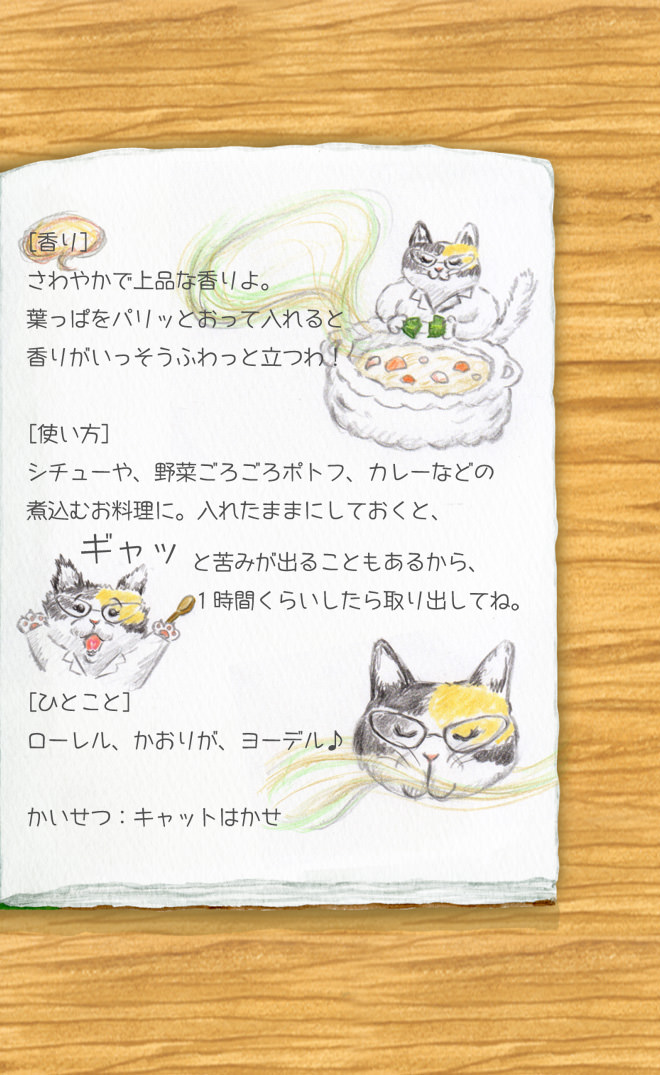 [香り]
さわやかで上品な香りよ。
葉っぱをパリッとおって入れると
香りがいっそうふわっと立つわ！
[使い方]
シチューや、野菜ごろごろポトフ、カレーなどの
煮込むお料理に。入れたままにしておくと、
ギャッと苦みが出ることもあるから、
1時間くらいしたら取り出してね。
[ひとこと]
ローレル、かおりが、ヨーデル♪
かいせつ：キャットはかせ